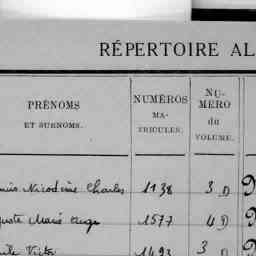 RÉPERTOIRE AL
PRÉNOMS
ET SURNOMS.
NUMÉROS
MA-
TRICULES.
NU-
MÉRO
du
VOLUME.
Nicodème Charles 1138 3 D
Marie Ange 1577 4 D
Victor 1493 3 D